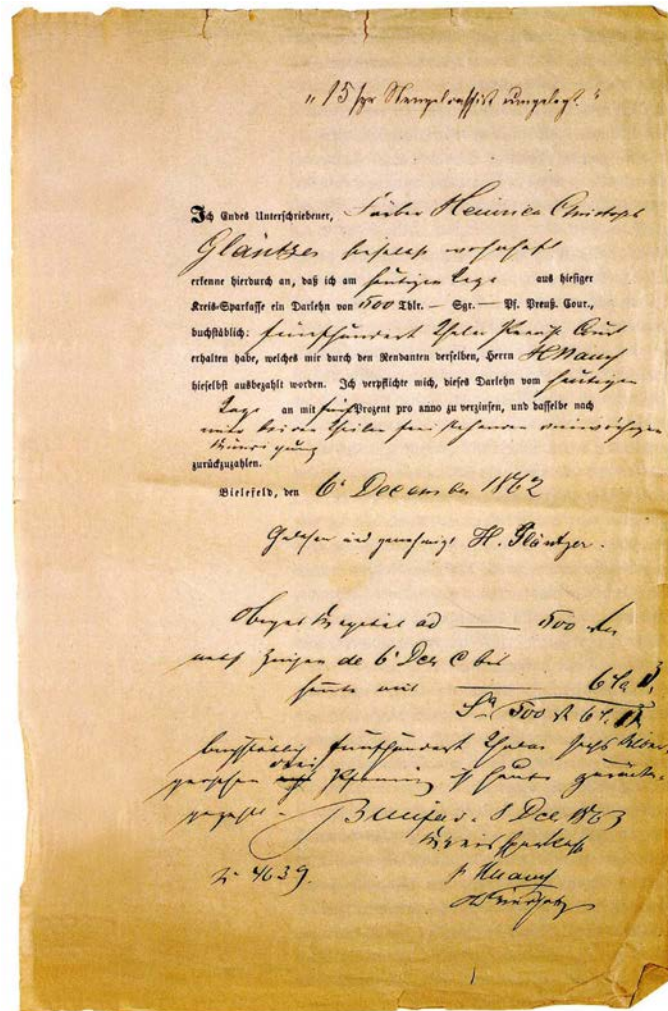 "15 sgr Stempel umgelegt."
Ich Endes Unterschriebener, Färber Heinrich Christoph
Gläntzer hieselbst wohnhaft
erkenne hierdurch an, daß ich am heutigen Tage aus hiesiger
Kreis-Sparkasse ein Darlehn von 500 Thlr. — Sgr. — Pf. Preuß. Cour.,
buchstäblich: fünfhundert Thaler Preuß. Cour.
erhalten habe, welches mir durch den Rendanten derselben, Herrn
hieselbst ausbezahlt worden. Ich verpflichte mich, dieses Darlehn vom heutigen
Tage an mit fünf Prozent pro anno zu verzinsen, und dasselbe nach
einer beiden Theilen frei stehenden
Kündigung
zurückzuzahlen.
Bielefeld, den 6' December 1862
Gelesen und genehmigt H. Gläntzer.
Obiges Kapital ad — 500
nebst Zinsen de 6' Dec c bis
heute mit — 6
500 6
buchstäblich fünfhundert Thaler sechs Silber-
groschen drei Pfennig ist heute zurück-
gezahlt. 8 Dec 1863
Kreis Sparkasse
4639.